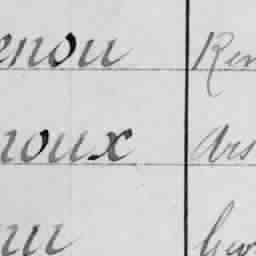 enou Ren
noux Ars
nu